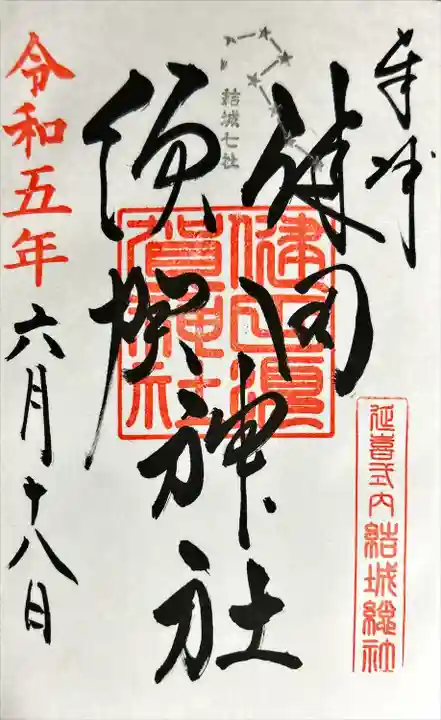 奉拝
延喜式内結城総社
結城七社
健田
須賀
神社
健田須
賀神社
令和五年六月十八日